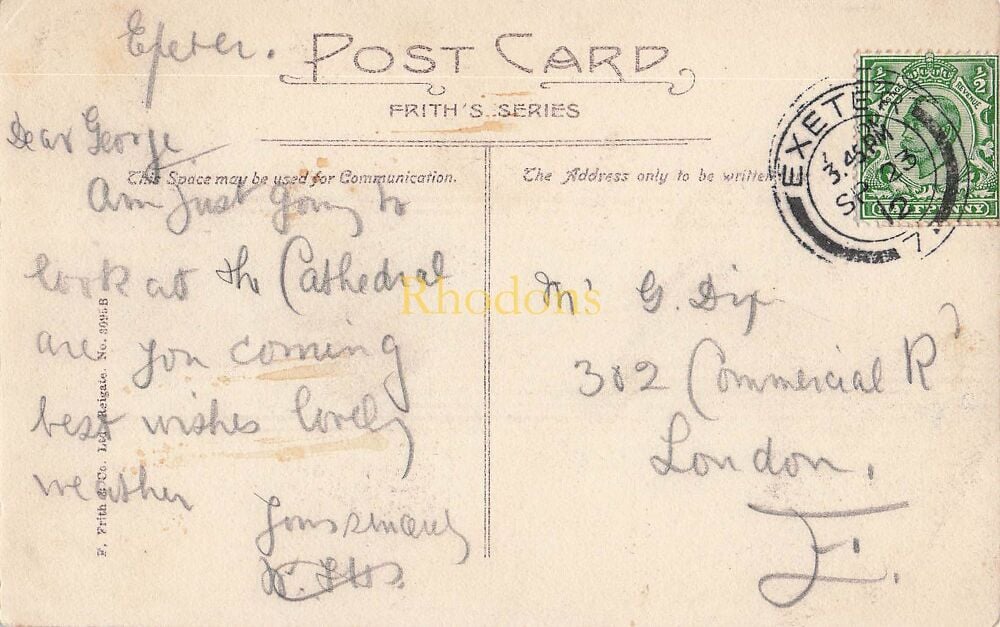 Exeter.
POST CARD
FRITH'S SERIES
Dear George
This Space may be used for Communication.
Am Just going to
look at the Cathedral
are you coming
best wishes lovely
weather
Yours sincerely
F. Frith & Co. Ltd., Reigate. No. 3095B
The Address only to be written
Mr G. Dix
302 Commercial Rd
London,
E.
EXETER
3.45 PM
SP 23
12
7
½ ½
REVENUE
HALFPENNY
Rhodons